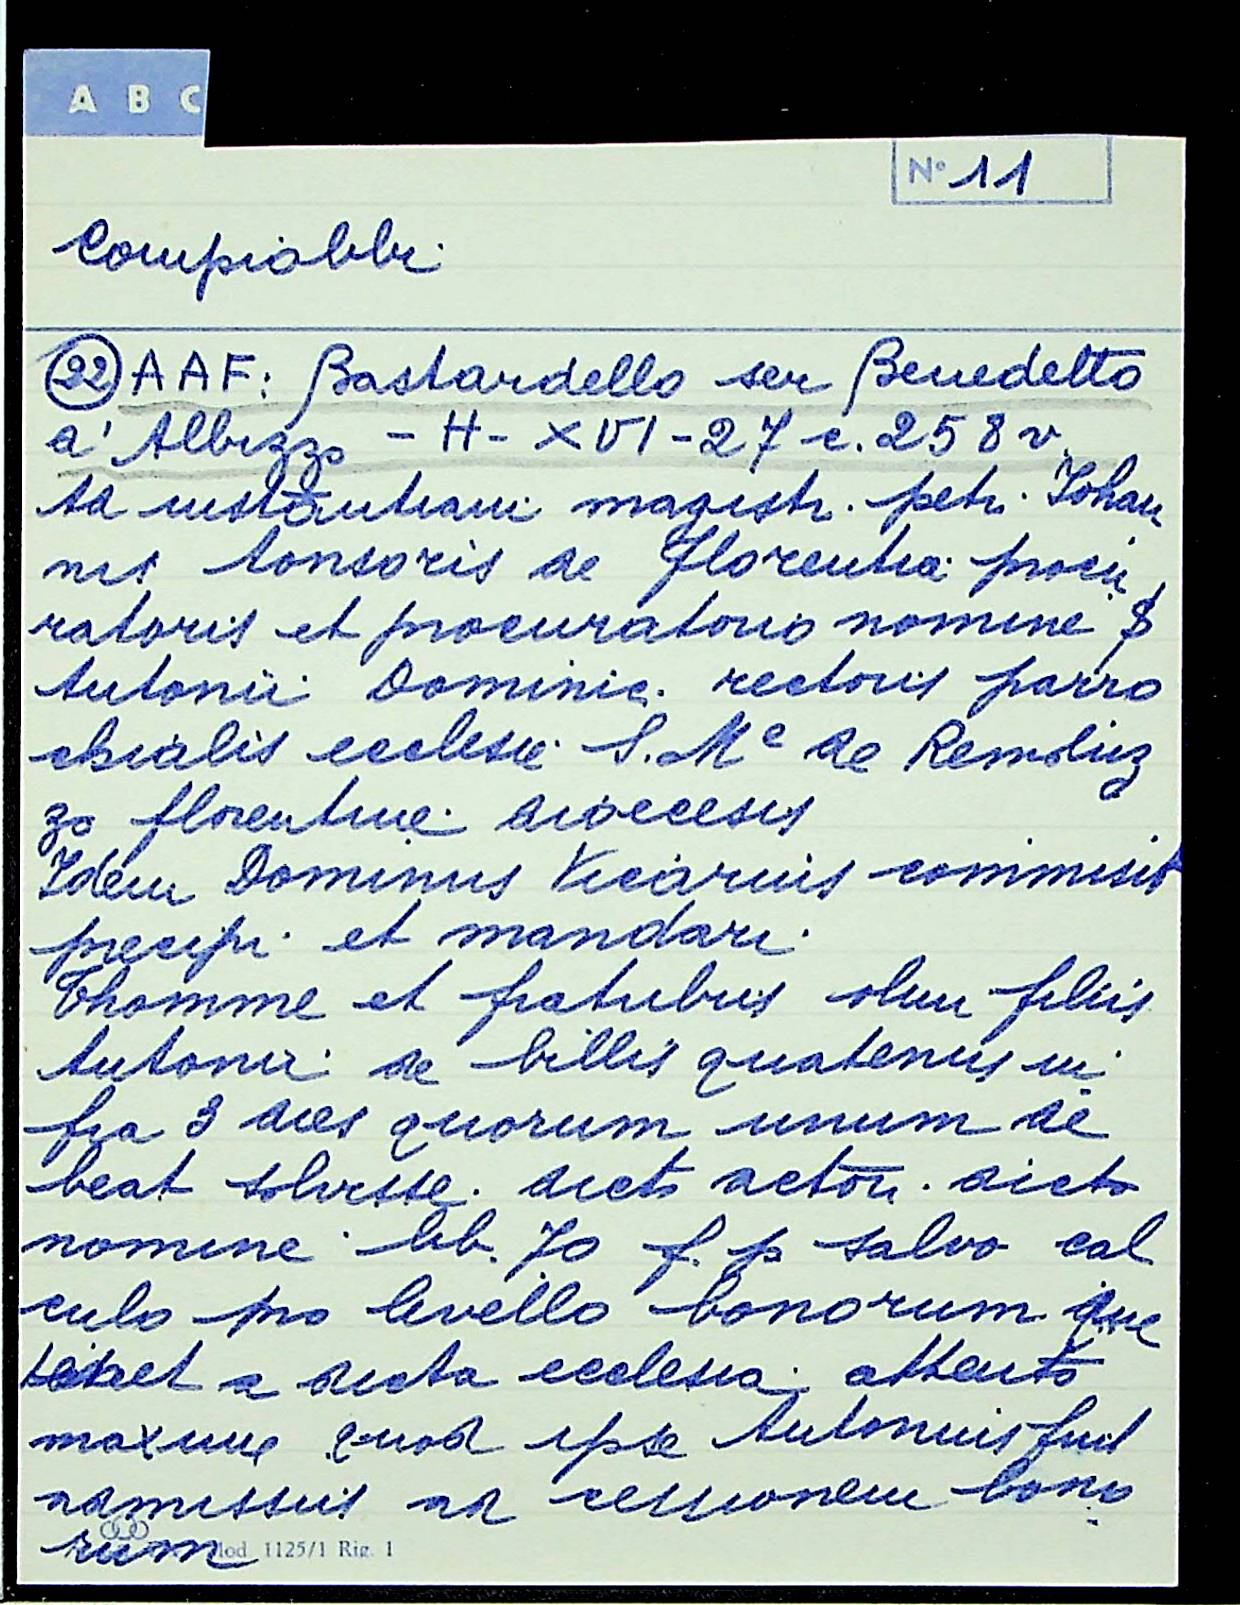 A B C
N° 11
Compiobbi
22 AAF: Bastardello ser Benedetto
d'Albizzo - H - XVI - 27 c. 258 v.
Ad instantiam magistr. petr. Johan
nis tonsoris de Florentia procu
ratoris et procuratorio nomine
Antonii Dominic. rectoris parro
chialis ecclesie S. Me de Remoluz
zo florentine diocesis
Idem Dominus Vicarius commisit
precipi et mandari
Thomme et fratribus olim filiis
Antonii de billis quatenus in
fra 3 dies quorum unum de
beat solvisse dicto actori dicto
nomine lib. 70 f. p salvo cal
culo pro livello bonorum que
tenet a dicta ecclesia attento
maxime quod ipse Antonius fuit
admissus ad cessionem bono
rum
Mod 1125/1 Rig. 1